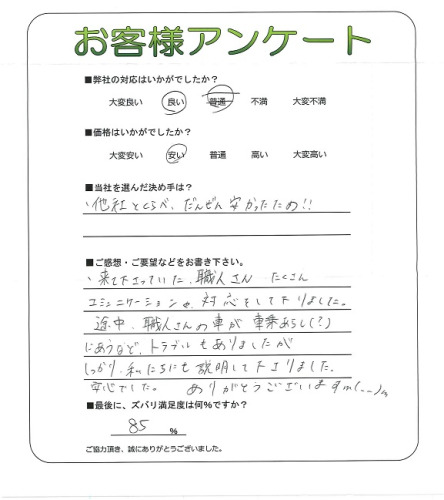 お客様アンケート
■弊社の対応はいかがでしたか?
大変良い 良い 普通 不満 大変不満
■価格はいかがでしたか?
大変安い 安い 普通 高い 大変高い
■当社を選んだ決め手は?
・他社とくらべ、だんぜん安かったため!!
■ご感想・ご要望などをお書き下さい。
・来て下さっていた、職人さん たくさん
コミュニケーションや、対応をして下りました。
途中、職人さんの車が 車乗あらし(?)
にあうなど、トラブルもありましたが
しっかり、私たちにも説明して下さりました。
安心でした。 ありがとうございますm(__)m
■最後に、ズバリ満足度は何%ですか?
85 %
ご協力頂き、誠にありがとうございました。